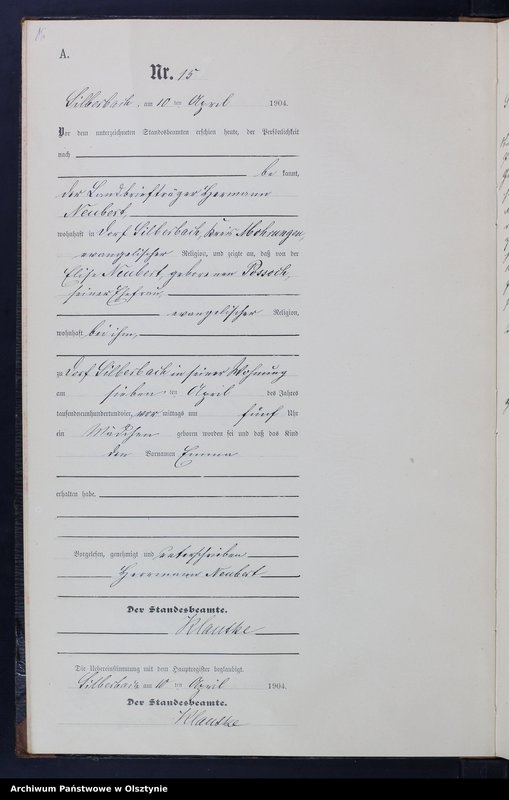 A.
Nr. 15
Silberbach, am 10 ten April 1904.
Vor dem unterzeichneten Standesbeamten erschien heute, der Persönlichkeit
nach
be kannt,
der Landbriefträger Hermann
Neubert,
wohnhaft in Dorf Silberbach, Kreis Mohrungen,
evangelischer Religion, und zeigte an, daß von der
Elise Neubert, geborenen Possoch,
seiner Ehefrau,
evangelischer Religion,
wohnhaft bei ihm,
zu Dorf Silberbach in seiner Wohnung
am sieben ten April des Jahres
tausendneunhundertundvier, vor mittags um fünf Uhr
ein Mädchen geboren worden sei und daß das Kind
den Vornamen Emma
erhalten habe.
Vorgelesen, genehmigt und unterschrieben
Herrmann Neubert
Der Standesbeamte.
Klautke
Die Uebereinstimmung mit dem Hauptregister beglaubigt.
Silberbach am 10 ten April 1904.
Der Standesbeamte.
Klautke
Archiwum Państwowe w Olsztynie